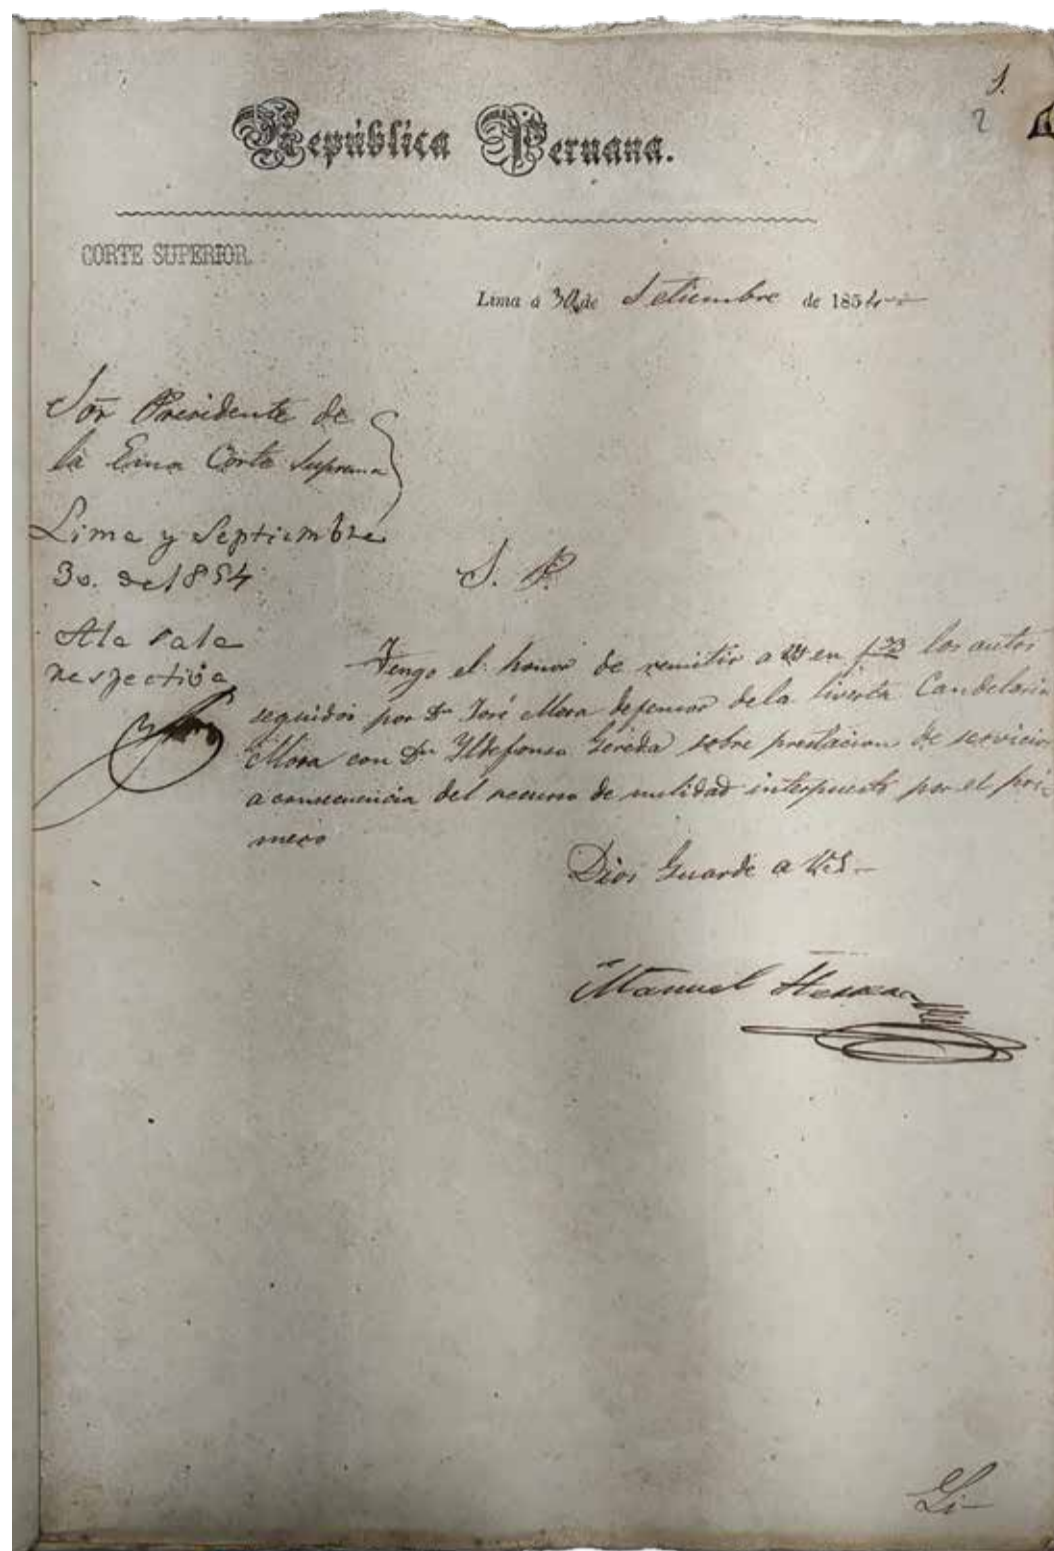 1.
2
República Peruana.
CORTE SUPERIOR.
Lima á 30 de Setiembre de 1854
Sor Presidente de
la Exma Corte Suprema
Lima y Septiembre
30. de 1854
A la sala
respectiva
S. P.
Tengo el honor de remitir a en f los autos
seguidos por Dn José Mora defensor de la liverta Candelaria
Mora con Dn Yldefonso Gereda sobre prestacion de servicios
a consecuencia del recurso de nulidad interpuesto por el pri-
mero
Dios Guarde a
Manuel Herrera